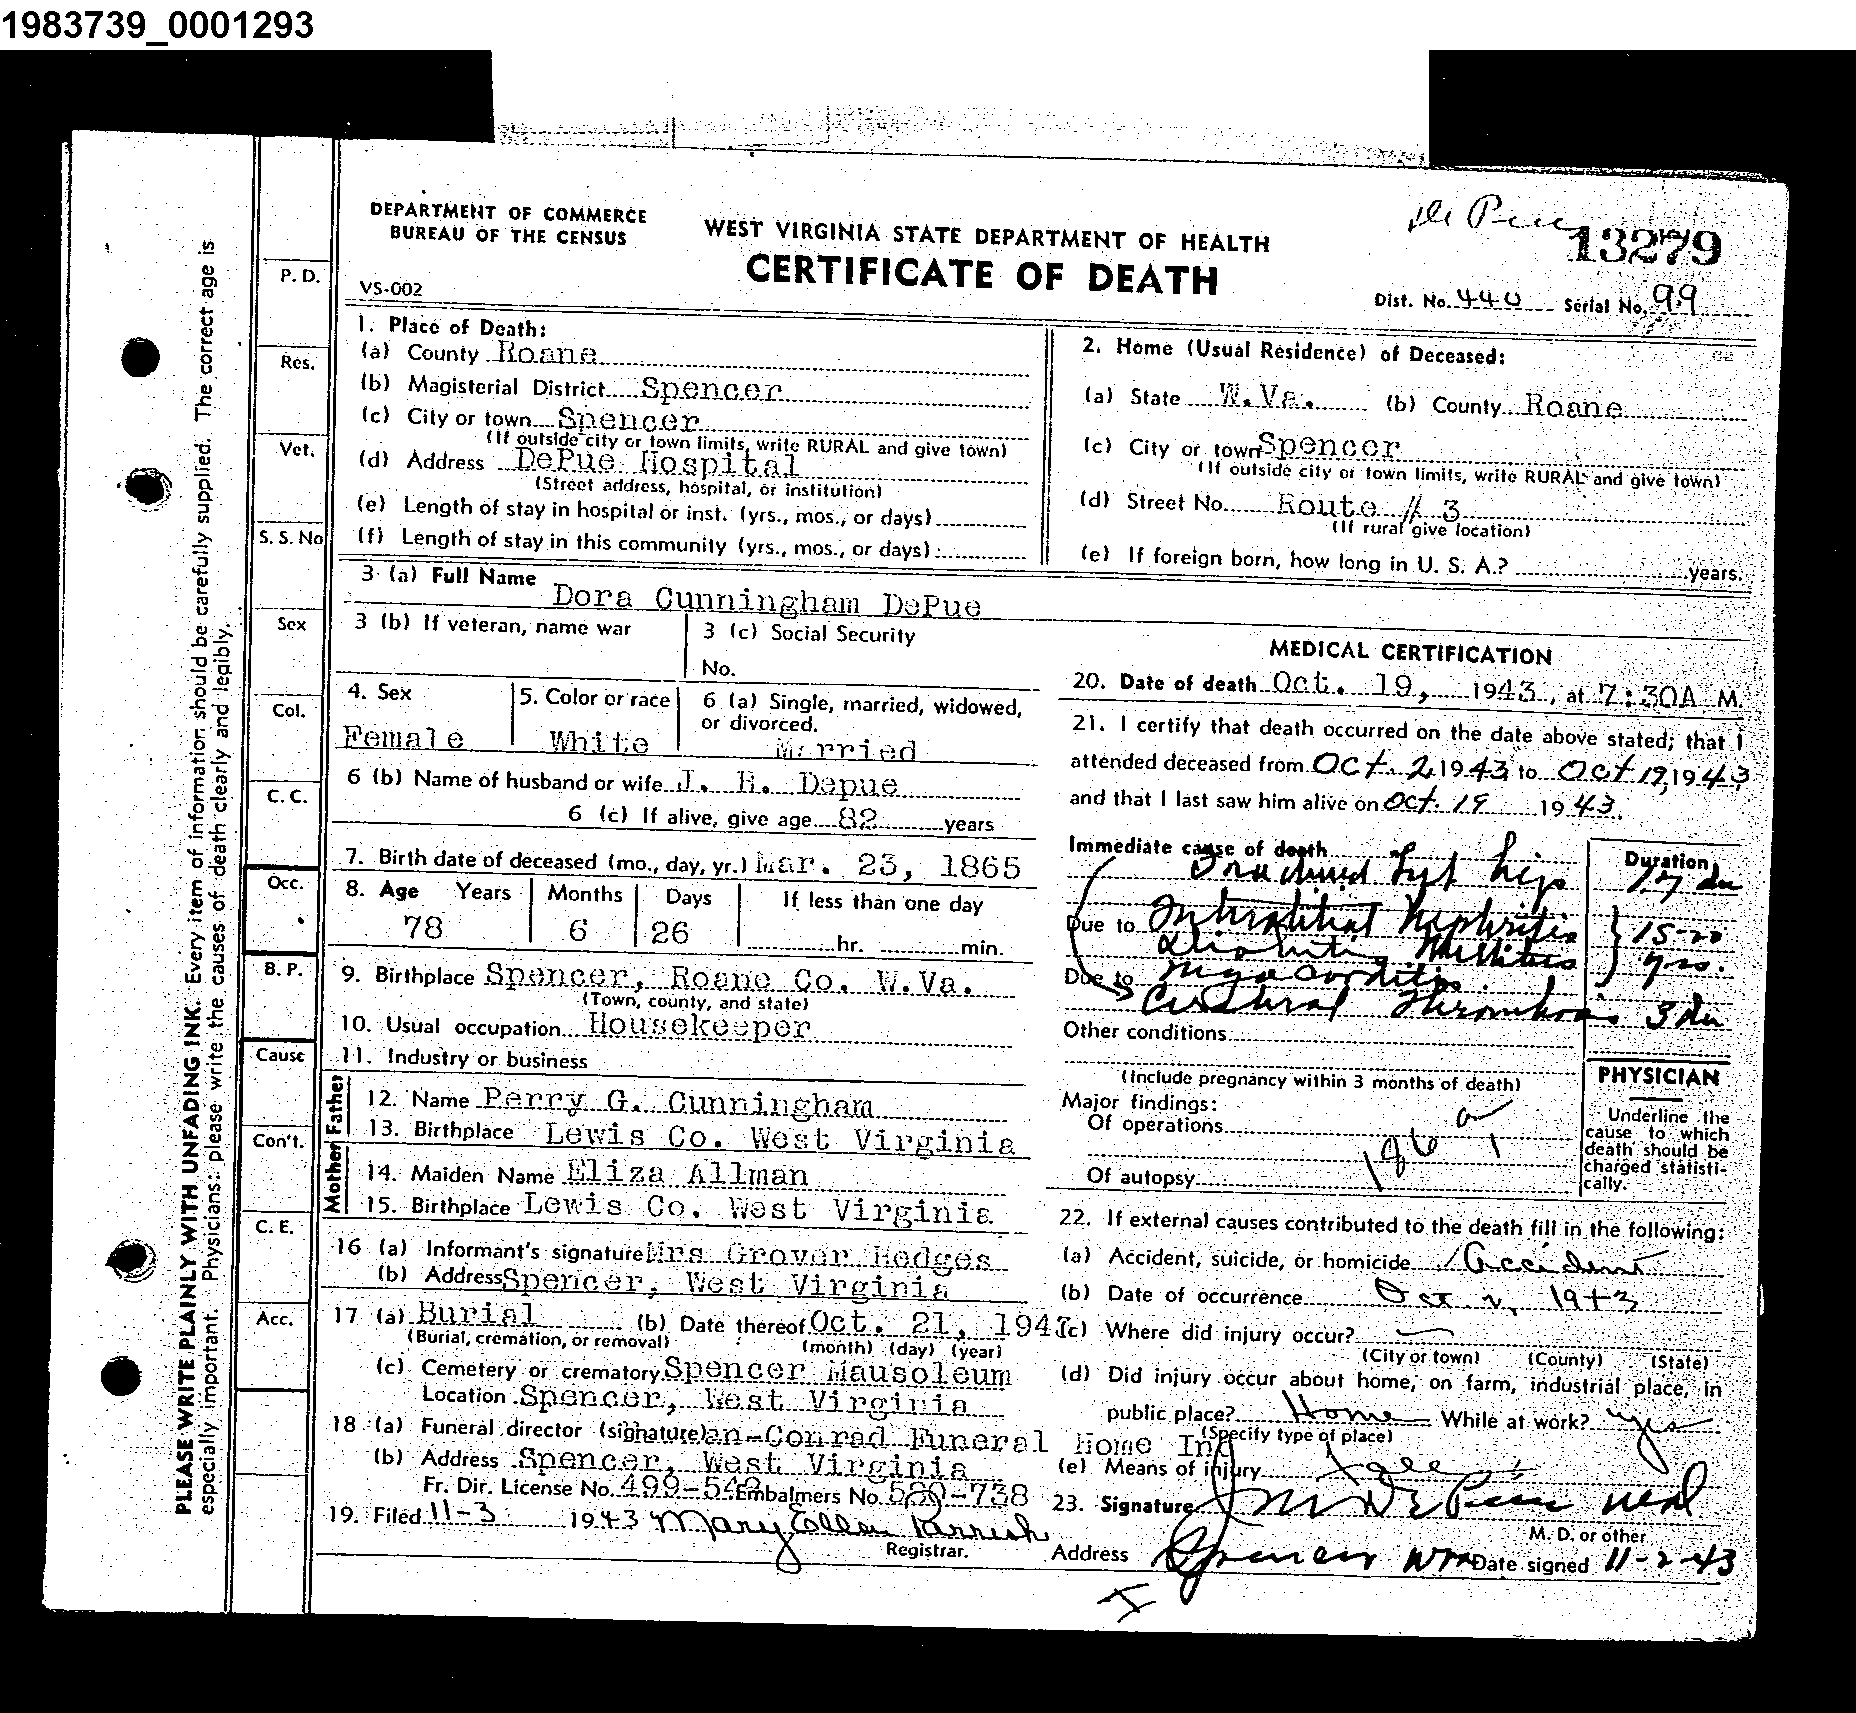 1983739_0001293
De Pue
13279
DEPARTMENT OF COMMERCE
BUREAU OF THE CENSUS
WEST VIRGINIA STATE DEPARTMENT OF HEALTH
CERTIFICATE OF DEATH
VS-002
Dist. No. 440 Serial No. 99
PLEASE WRITE PLAINLY WITH UNFADING INK. Every item of information should be carefully supplied. The correct age is
especially important. Physicians: please write the causes of death clearly and legibly.
P. D.
Res.
Vet.
S. S. No
Sex
Col.
C. C.
Occ.
B. P.
Cause
Con't.
C. E.
Acc.
1. Place of Death:
(a) County Roane
(b) Magisterial District Spencer
(c) City or town Spencer
(If outside city or town limits, write RURAL and give town)
(d) Address DePue Hospital
(Street address, hospital, or institution)
(e) Length of stay in hospital or inst. (yrs., mos., or days)
(f) Length of stay in this community (yrs., mos., or days):
2. Home (Usual Residence) of Deceased:
(a) State W.Va. (b) County Roane
(c) City or town Spencer
(If outside city or town limits, write RURAL and give town)
(d) Street No. Route # 3
(If rural give location)
(e) If foreign born, how long in U. S. A.? years.
3 (a) Full Name
Dora Cunningham DePue
3 (b) If veteran, name war
3 (c) Social Security
No.
4. Sex
Female
5. Color or race
White
6 (a) Single, married, widowed,
or divorced.
Married
6 (b) Name of husband or wife J. H. Depue
6 (c) If alive, give age 82 years
7. Birth date of deceased (mo., day, yr.) Mar. 23, 1865
8. Age Years Months Days If less than one day
78 6 26 hr. min.
9. Birthplace Spencer, Roane Co. W.Va.
(Town, county, and state)
10. Usual occupation Housekeeper
11. Industry or business
Father
12. Name Perry G. Cunningham
13. Birthplace Lewis Co. West Virginia
Mother
14. Maiden Name Eliza Allman
15. Birthplace Lewis Co. West Virginia
16 (a) Informant's signature Mrs Grover Hedges
(b) Address Spencer, West Virginia
17 (a) Burial (b) Date thereof Oct. 21, 194
(Burial, cremation, or removal) (month) (day) (year)
(c) Cemetery or crematory Spencer Mausoleum
Location Spencer, West Virginia
18 (a) Funeral director (signature) an-Conrad Funeral Home Inc
(b) Address Spencer, West Virginia
Fr. Dir. License No. 499-542 Embalmers No. 580-738
19. Filed 11-3 1943 Mary Ellen Parrish
Registrar.
MEDICAL CERTIFICATION
20. Date of death Oct. 19, 1943, at 7:30A M.
21. I certify that death occurred on the date above stated; that I
attended deceased from Oct. 2, 1943, to Oct 19, 1943
and that I last saw him alive on Oct. 19 1943.
Immediate cause of death Duration
Fractured left hip 17 da
Due to Interstitial Nephritis 15-20
Diabetes Mellitus yrs.
Due to Myocarditis
Cerebral Thrombosis 3 da
Other conditions
(Include pregnancy within 3 months of death)
Major findings:
Of operations
Of autopsy
PHYSICIAN
Underline the
cause to which
death should be
charged statisti-
cally.
22. If external causes contributed to the death fill in the following:
(a) Accident, suicide, or homicide Accident
(b) Date of occurrence Oct 2, 1943
(c) Where did injury occur?
(City or town) (County) (State)
(d) Did injury occur about home, on farm, industrial place, in
public place? Home While at work? yes
(Specify type of place)
(e) Means of injury
23. Signature M DePue MD
M. D. or other
Address Spencer WVa Date signed 11-2-43